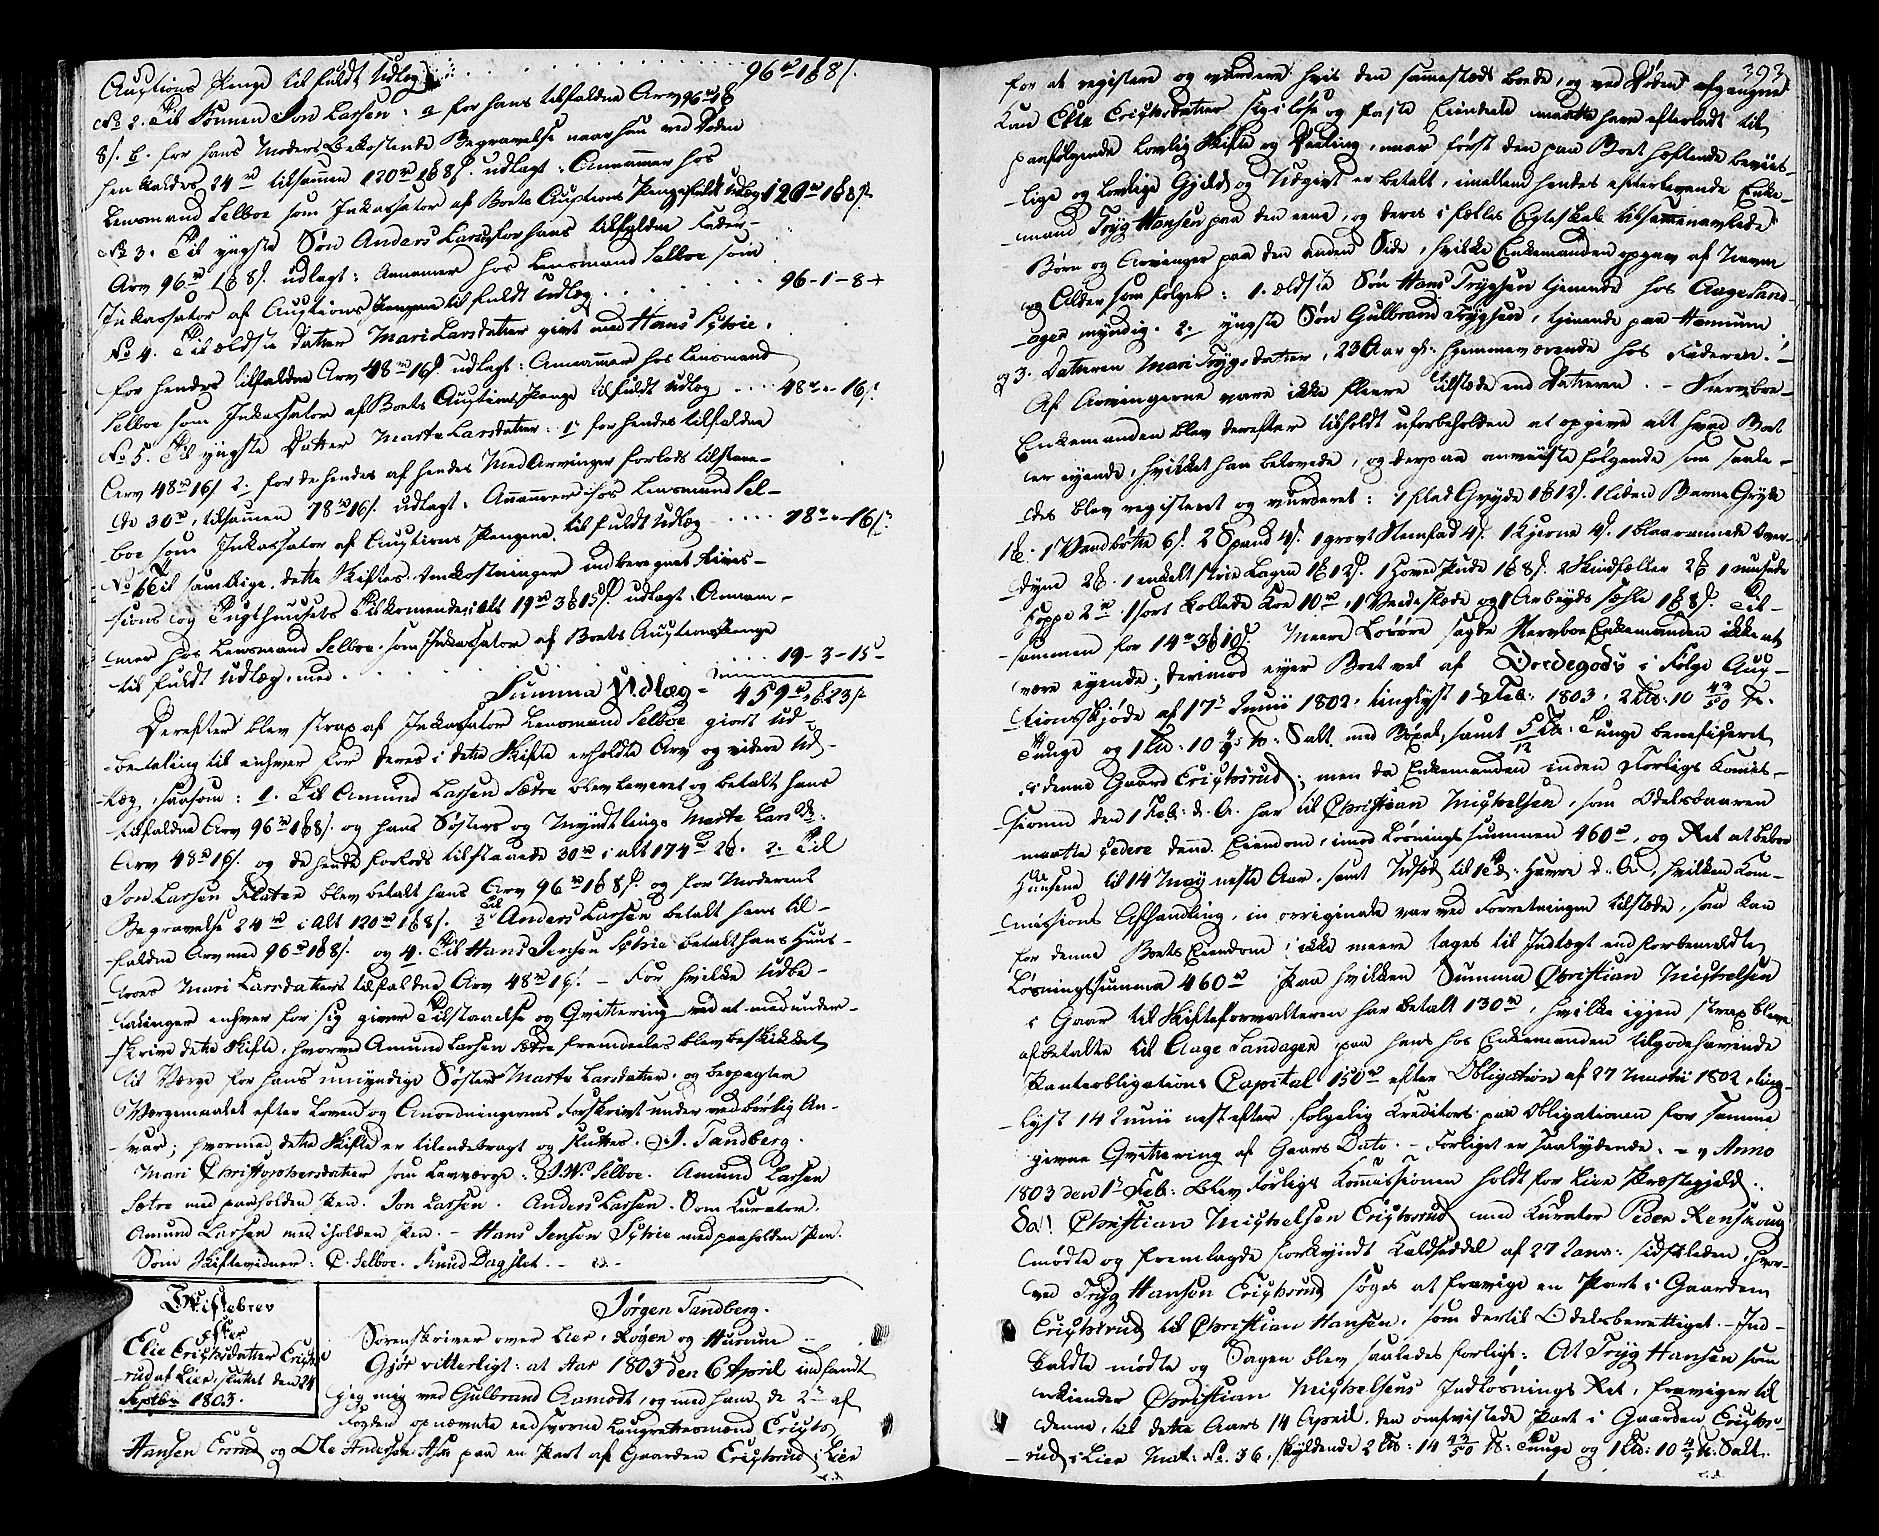 Auctions Penge til fuldt Udlæg . . . . 96 rd 1 ₰ 8 s.
No 2. Til Sønnen Jon Larsen: a for hans tilfaldne Arv 96 rd 1 ₰
8 s. b. for hans Moders bekostende Begravelse naar hun ved Døden
henkaldes 24 rd tilsammen 120 rd 1 ₰ 8 s. udlagt: Annammer hos
Lensmand Selboe som Inkassator af Boets Auctions Penge fuldt Udlæg 120 rd 1 ₰ 8 s.
No 3. Til yngste Søn Anders Larsen for hans tilfaldne Fader-
Arv 96 rd 1 ₰ 8 s. udlagt: Annamer hos Lensmand Selboe som
Inkassator af Auctions Pengene til fuldt Udlæg . . . . 96 - 1 - 8 -
No 4. Til ældste Datter Mari Larsdatter givt med Hans Sytrie.
for hendes tilfaldne Arv 48 rd 16 s. udlagt: Annammer hos Lensmand
Selboe som Inkassator af Boets Auctions Penge til fuldt Udlæg . . . 48 rd - 16 s.
No 5. Til yngste Datter Marte Larsdatter: 1 for hendes tilfaldne
Arv 48 rd 16 s. 2. for de hendes af hendes Med Arvinger forlods tilstaae-
de 30 rd, tilsammen 78 rd 16 s. udlagt, Annammer hos Lensmand Sel-
boe som Inkassator af Auctions Pengene til fuldt Udlæg . . . . 78 rd - 16 s.
No 6 Til samtlige dette Skiftes Omkostninger indberegnet Revi-
sions og Tugthusets Tilkomende i alt 19 rd 3 ₰ 15 s. udlagt, Annam-
mer hos Lensmand Selboe, som Inkassator af Boets Auctions Penge
til fuldt Udlæg, med . . . . 19 - 3 - 15 -
Summa Udlæg - 459 rd 23 s.
Derefter blev strax af Inkassator Lensmand Selboe giort Ud-
betaling til enhver for deres i dette Skifte erholdte Arv og videre Ud-
læg, saasom: 1. Til Amund Larsen Sætre blev leveret og betalt hans
tilfaldne Arv 96 rd 1 ₰ 8 s. og hans Søsters og Myndtlings Marte Larsd:
Arv 48 rd 16 s. og de hende forlods tilstaaede 30 rd i alt 174 rd 2 ₰. 2. Til
Jon Larsen Flaten blev betalt hans Arv 96 rd 1 ₰ 8 s. og for Moderens
Begravelse 24 rd i alt 120 rd 1 ₰ 8 s. 3 Til Anders Larsen betalt hans til-
faldne Arv med 96 rd 1 ₰ 8 s. og 4. Til Hans Jensen Sytrie betalt hans Huus-
troes Mari Larsdatters tilfaldne Arv 48 rd 16 s. - For hvilke Udbe-
talinger enhver for sig giver Tilstaaelse og Qvittering ved at med under-
skrive dette Skifte, hvorved Amund Larsen Sætre fremdeeles blev beskikket
til Værge for hans umyndige Søster Marte Larsdatter, og beopagter
Værgemaalet efter Loven og Anordningernes Forskrivt under vedbørlig An-
svar; hvormed dette Skifte er tilendebragt og sluttes. J. Tandberg.
Mari Christophersdatter som Lavværge: J. W. Selboe. Amund Larsen
Sætre med paaholden Pen. Jon Larsen. Anders Larsen. Som Kurator.
Amund Larsen med iholden Pen. - Hans Jensen Sytrie med paaholden Pen.
Som Skiftevidner: C. Selboe. Knud Dagslet. -
Skiftebrev
efter
Elie Erichsdatter Erichs-
rud af Lier, sluttet den 24
Septbr 1803.
Jørgen Tandberg.
Sorenskriver over Lier, Røgen og Hurum -
Gjør vitterligt: at Aar 1803 den 6 April indfandt
jeg mig ved Gulbrand Aamodt, og med ham de 2de af
Fogden opnævnte eedsvorne Laugrettesmænd Erich
Hansen Eisrud og Ole Andersen Ask paa en Part af Gaarden Erichsrud i Lier
393
for at registere og vurdere hvis den sammesteds boede, og ved Døden afgangne
Kone Elie Erichsdatter Rye løse og faste Eiendeele maatte have efterladt til
paafølgende lovlig Skifte og Deeling, naar først den paa Boet heftende beviis-
lige og lovlige Gjeld og Udgivt er betalt, imellem hendes efterlevende Enke-
mand Tryg Hansen paa den eene, og deres i fælles Egteskab tilsammenavlede
Børn og Arvinger paa den anden Side, hvilke Enkemanden opgav af Navn
og Alder som følger: 1. ældste Søn Hans Trygsen tjenende hos Aage Land-
ager myndig. 2. yngste Søn Gulbrand Trygsen, tjenende paa Hennum
og 3. Datteren Mari Trygsdatter, 23 Aar gl: hjemmeværende hos Faderen. -
Af Arvingerne vare ikke fleere tilstæde end Datteren. - Stervboe-
Enkemanden blev derefter tilholdt uforbeholden at opgive alt hvad Boet
er eyende, hvilket han belovede, og derpaa anviiste følgende som saale-
des blev registeret og vurderet: 1 flad Gryde 1 ₰ 12 s. 1 liden Barne Gryde
1 ₰. 1 Vandbøtte 6 s. 2 Spand 4 s. 1 grovt Stenfad 4 s. 1 Kjerne 4 s. 1 blaarannet Over-
dyne 2 ₰. 1 enkelt strie Lagen 1 ₰ 12 s. 1 Hoved Pude 1 ₰ 8 s. 2 Skindfæller 2 ₰ 1 muusude
Hoppe 2 rd. 1 sort kollede Koe 10 rd, 1 Vindeslæde og 1 Arbeyds Sæhle 1 ₰ 8 s. Til-
sammen for 14 rd 3 ₰ 10 s. Meere Løsøre sagde Stervboe Enkemanden ikke at
være eyende; derimod eyer Boet vel af Jordegods i Følge Auc-
tionsskjøde af 17de Junii 1802, tinglyst 1ste Feb: 1803, 2 Ld: 10 43/50 Fr.
Tunge og 1 Ld: 10 4/9 Fr: Salt med Bøxel, samt 5/12 Fr: Tunge beneficeret
i denne Gaard Erichsrud, men da Enkemanden inden Forligs Komis-
sionen den 1 Feb: d. A. har til Christian Michelsen, som Odelsbaaren
maatte cedere denne Eiendom, imod Løsnings Summen 460 rd, og Ret at beboe
Husene til 14 May neste Aar, samt Udsæd til 1 Td: Havre d. A. hvilken Kom-
missions Afhandling, in originale var ved Forretningen tilstæde, saa kan
for denne Boets Eiendom ikke meere tages til Indtægt end forbemeldte
Løsningssumma 460 rd Paa hvilken Summa Christian Michelsen
i Gaar til Skifteforvalteren har betalt 130 rd, hvilke igjen strax bleve
afbetalte til Aage Landager paa hans hos Enkemanden tilgodehavende
Panteobligations Capital 150 rd efter Obligation af 27 Martii 1802, ting-
lyst 14 Junii nest efter, følgelig Kreditors paa Obligationen for samme
givne Qvittering af Gaars Dato. - Forliget er saalydende. - Anno
1803 den 1ste Feb: Blev Forligs Kommissionen holdt for Lier Præstegjeld.
Sa: Christian Michelsen Erichsrud med Kurator Peder Renskoug
mødte og fremlagde forkyndt Kaldseddel af 27 Janv: sidstleden, hvor-
ved Tryg Hansen Erichsrud søges at fravige en Part i Gaarden
Erichsrud til Christian Hansen, som dertil Odelsberettiget. - Ind-
kaldte mødte og Sagen blev saaledes forligt: At Tryg Hansen som
erkiender Christian Michelsens Indløsnings Ret, fraviger til
denne, til dette Aars 14 April den omtvistede Part i Gaarden Erichs-
rud i Lier Mat: No. 36, skyldende 2 Ld: 14 43/50 Fr: Tunge og 1 Ld: 10 4/9 Fr. Salt.